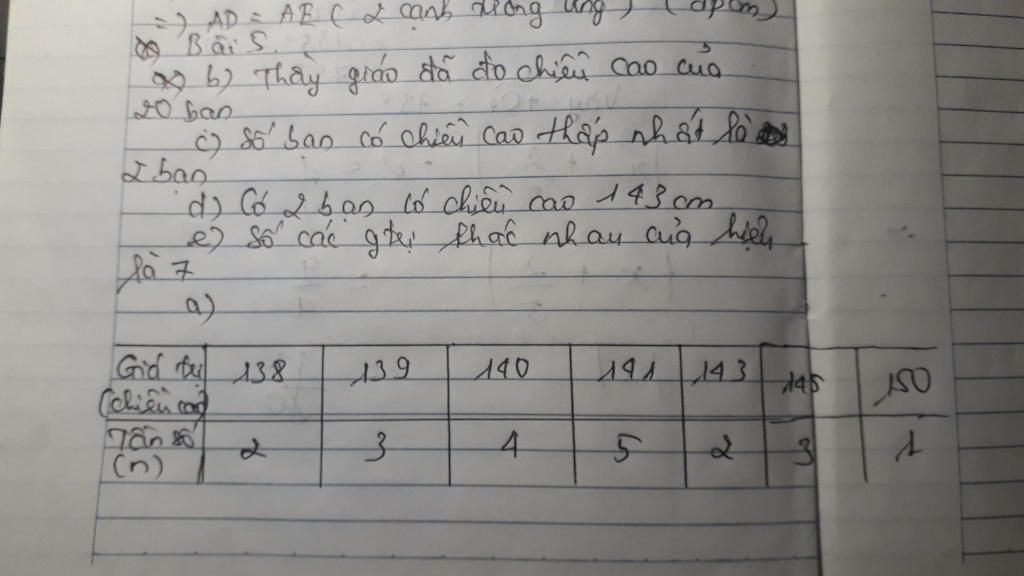 =) AD = AE ( 2 cạnh tương ứng ) (đpcm)
Bài 5.
b) Thầy giáo đã đo chiều cao của
20 bạn
c) Số bạn có chiều cao thấp nhất là
2 bạn
d) Có 2 bạn có chiều cao 143 cm
e) Số các gtrị khác nhau của hiệu
là 7
a)
Giá trị 138 139 140 141 143 145 150
(chiều cao)
Tần số 2 3 4 5 2 3 1
(n)